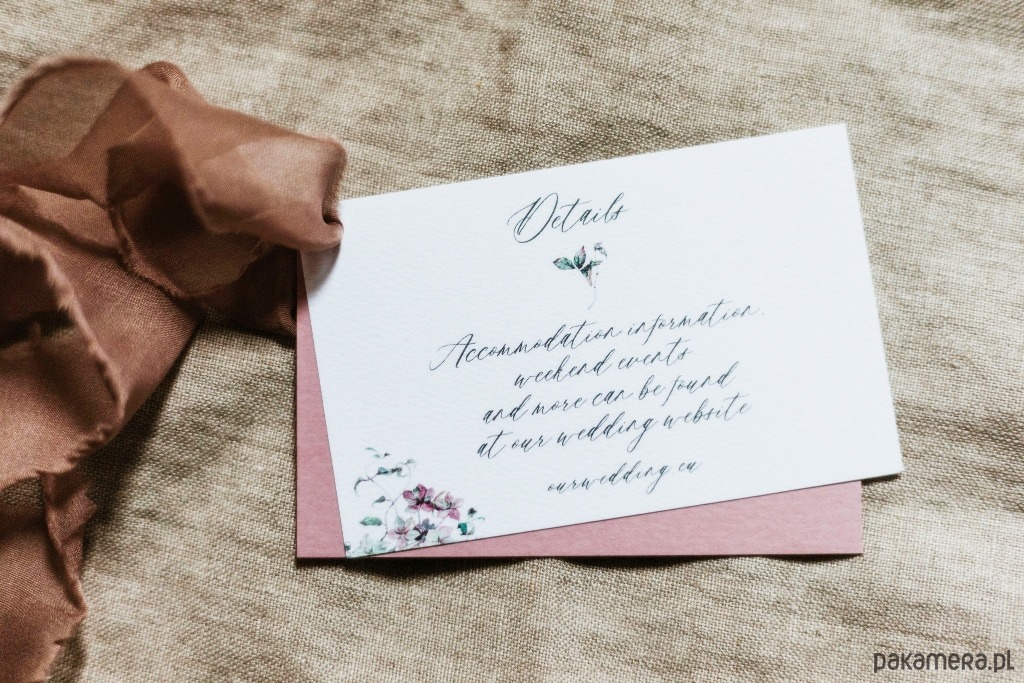 Details
Accommodation information,
weekend events
and more can be found
at our wedding website
ourwedding.eu
pakamera.pl